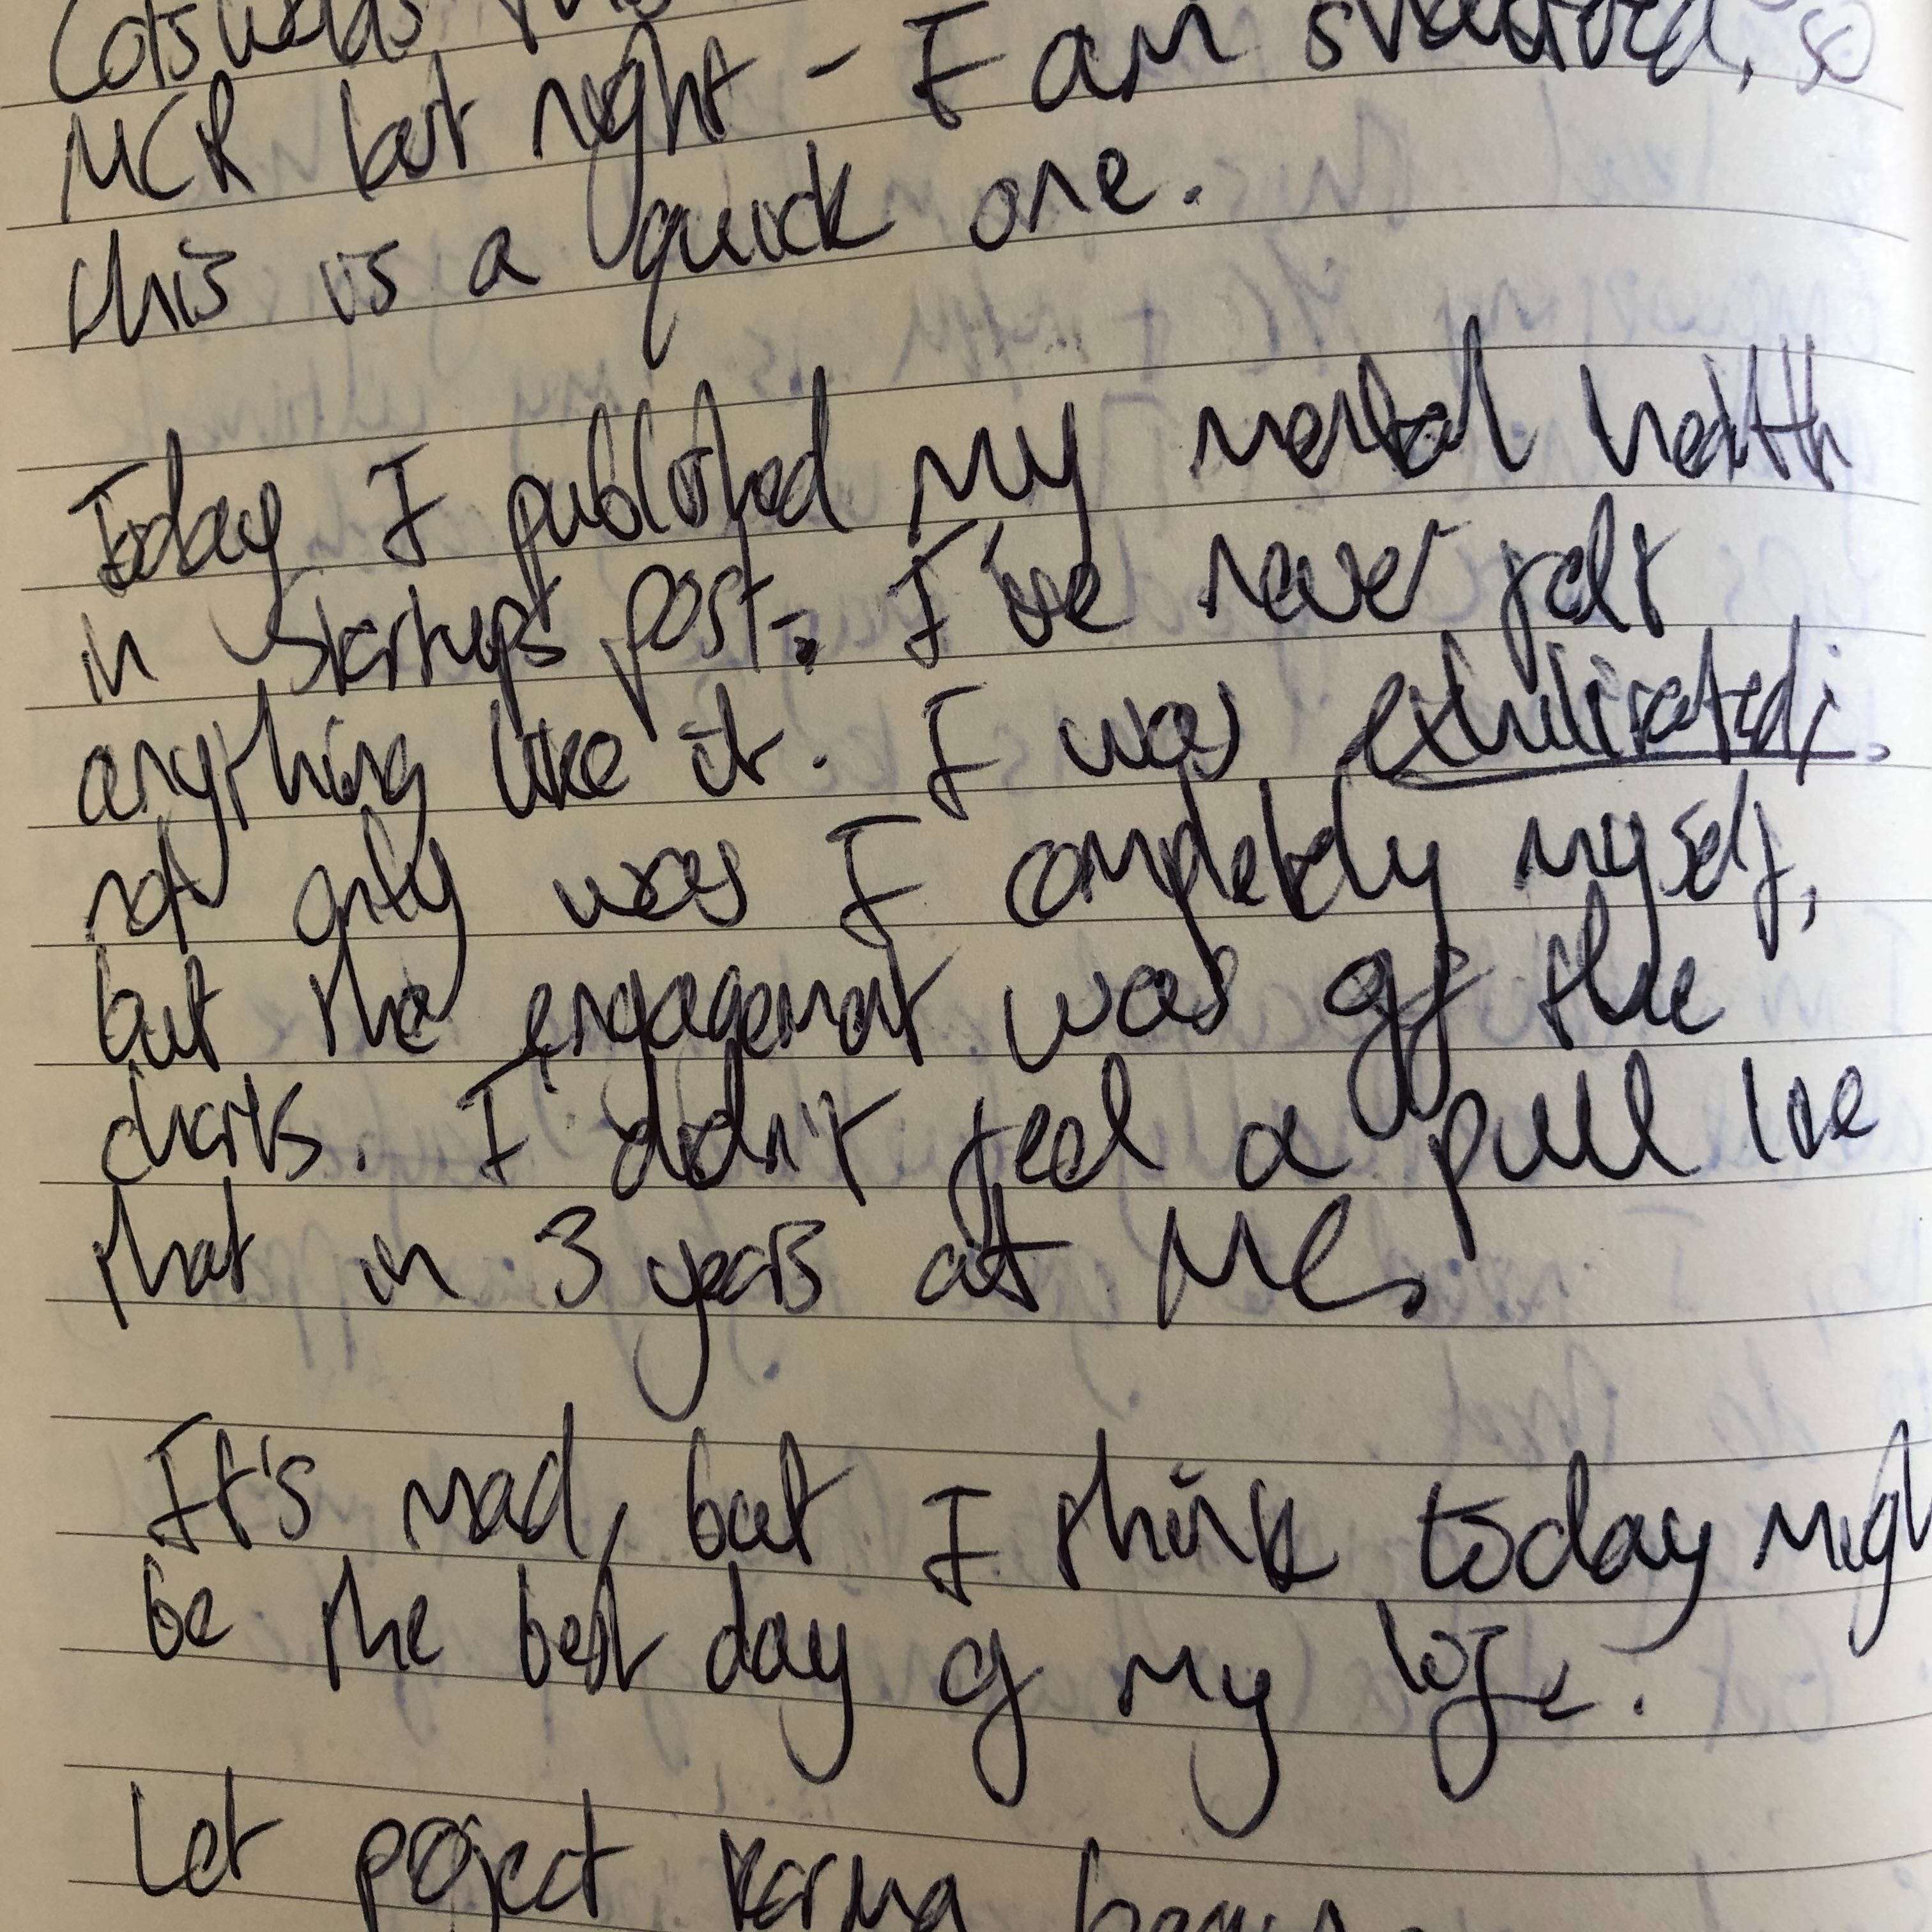 Cotswolds
MCR last night - I am shattered, so
this is a quick one.
Today I published my mental health
in Startups post. I've never felt
anything like it. I was exhilirated;
not only was I completely myself,
but the engagement was off the
charts. I didn't feel a pull like
that in 3 years at
It's mad, but I think today migh
be the best day of my life.
Let poject karma